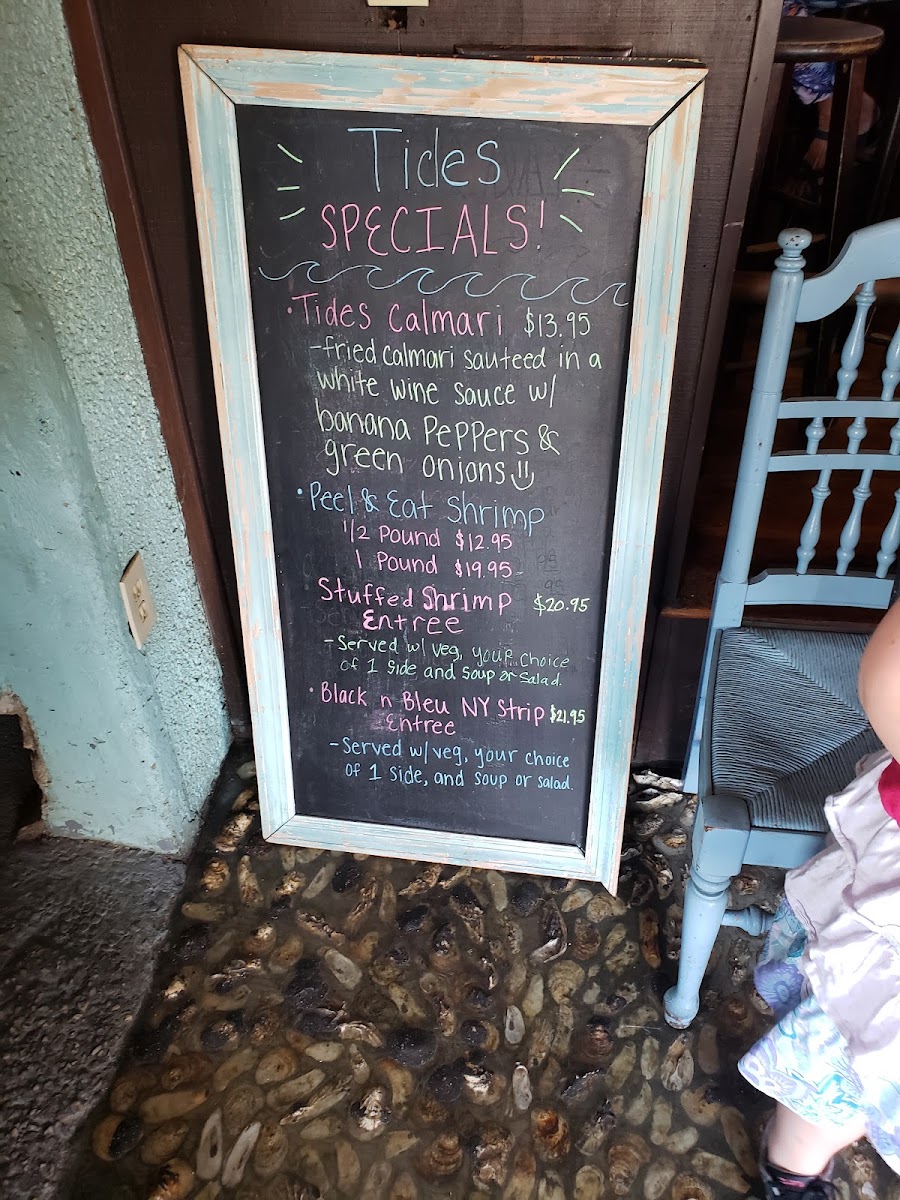 Tides
SPECIALS!
• Tides Calmari $13.95
- fried calmari sauteed in a
white wine sauce w/
banana Peppers &
green onions
• Peel & Eat Shrimp
1/2 Pound $12.95
1 Pound $19.95
Stuffed Shrimp $20.95
Entree
- Served w/ veg, your choice
of 1 side and soup or salad.
• Black n Bleu NY Strip $21.95
Entree
- Served w/ veg, your choice
of 1 side, and soup or salad.